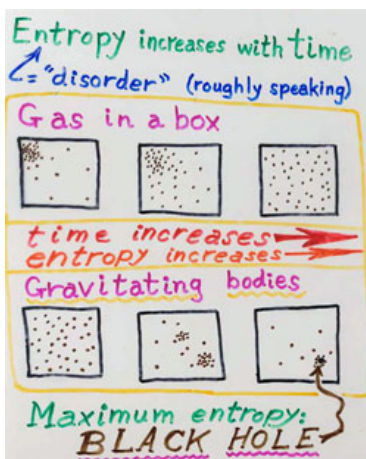 Entropy increases with time
= "disorder" (roughly speaking)
Gas in a box
time increases
entropy increases
Gravitating bodies
Maximum entropy:
BLACK HOLE